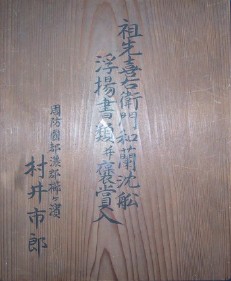 祖先喜右衛門和蘭沈舩
浮揚書類并褒賞入
周防國都濃郡櫛ヶ濱
村井市郎